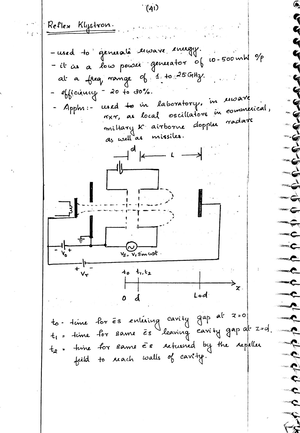 (41)
Reflex Klystron.
- used to generate μwave energy.
- it is a low power generator of 10-500 mW o/p
at a freq range of 1 to 25GHz.
- efficiency - 20 to 30%.
- Applns:- used in laboratory, in μwave
rxr, as local oscillators in commerical,
military & airborne doppler radars
as well as missiles.
d
L
V2 = V1 sin ωt
V0
Vr
t0 t1,t2
0 d L+d z
t0 - time for es entering cavity gap at z=0
t1 = time for same es leaving cavity gap at z=d.
t2 = time for same es returned by the repeller
field to reach walls of cavity.